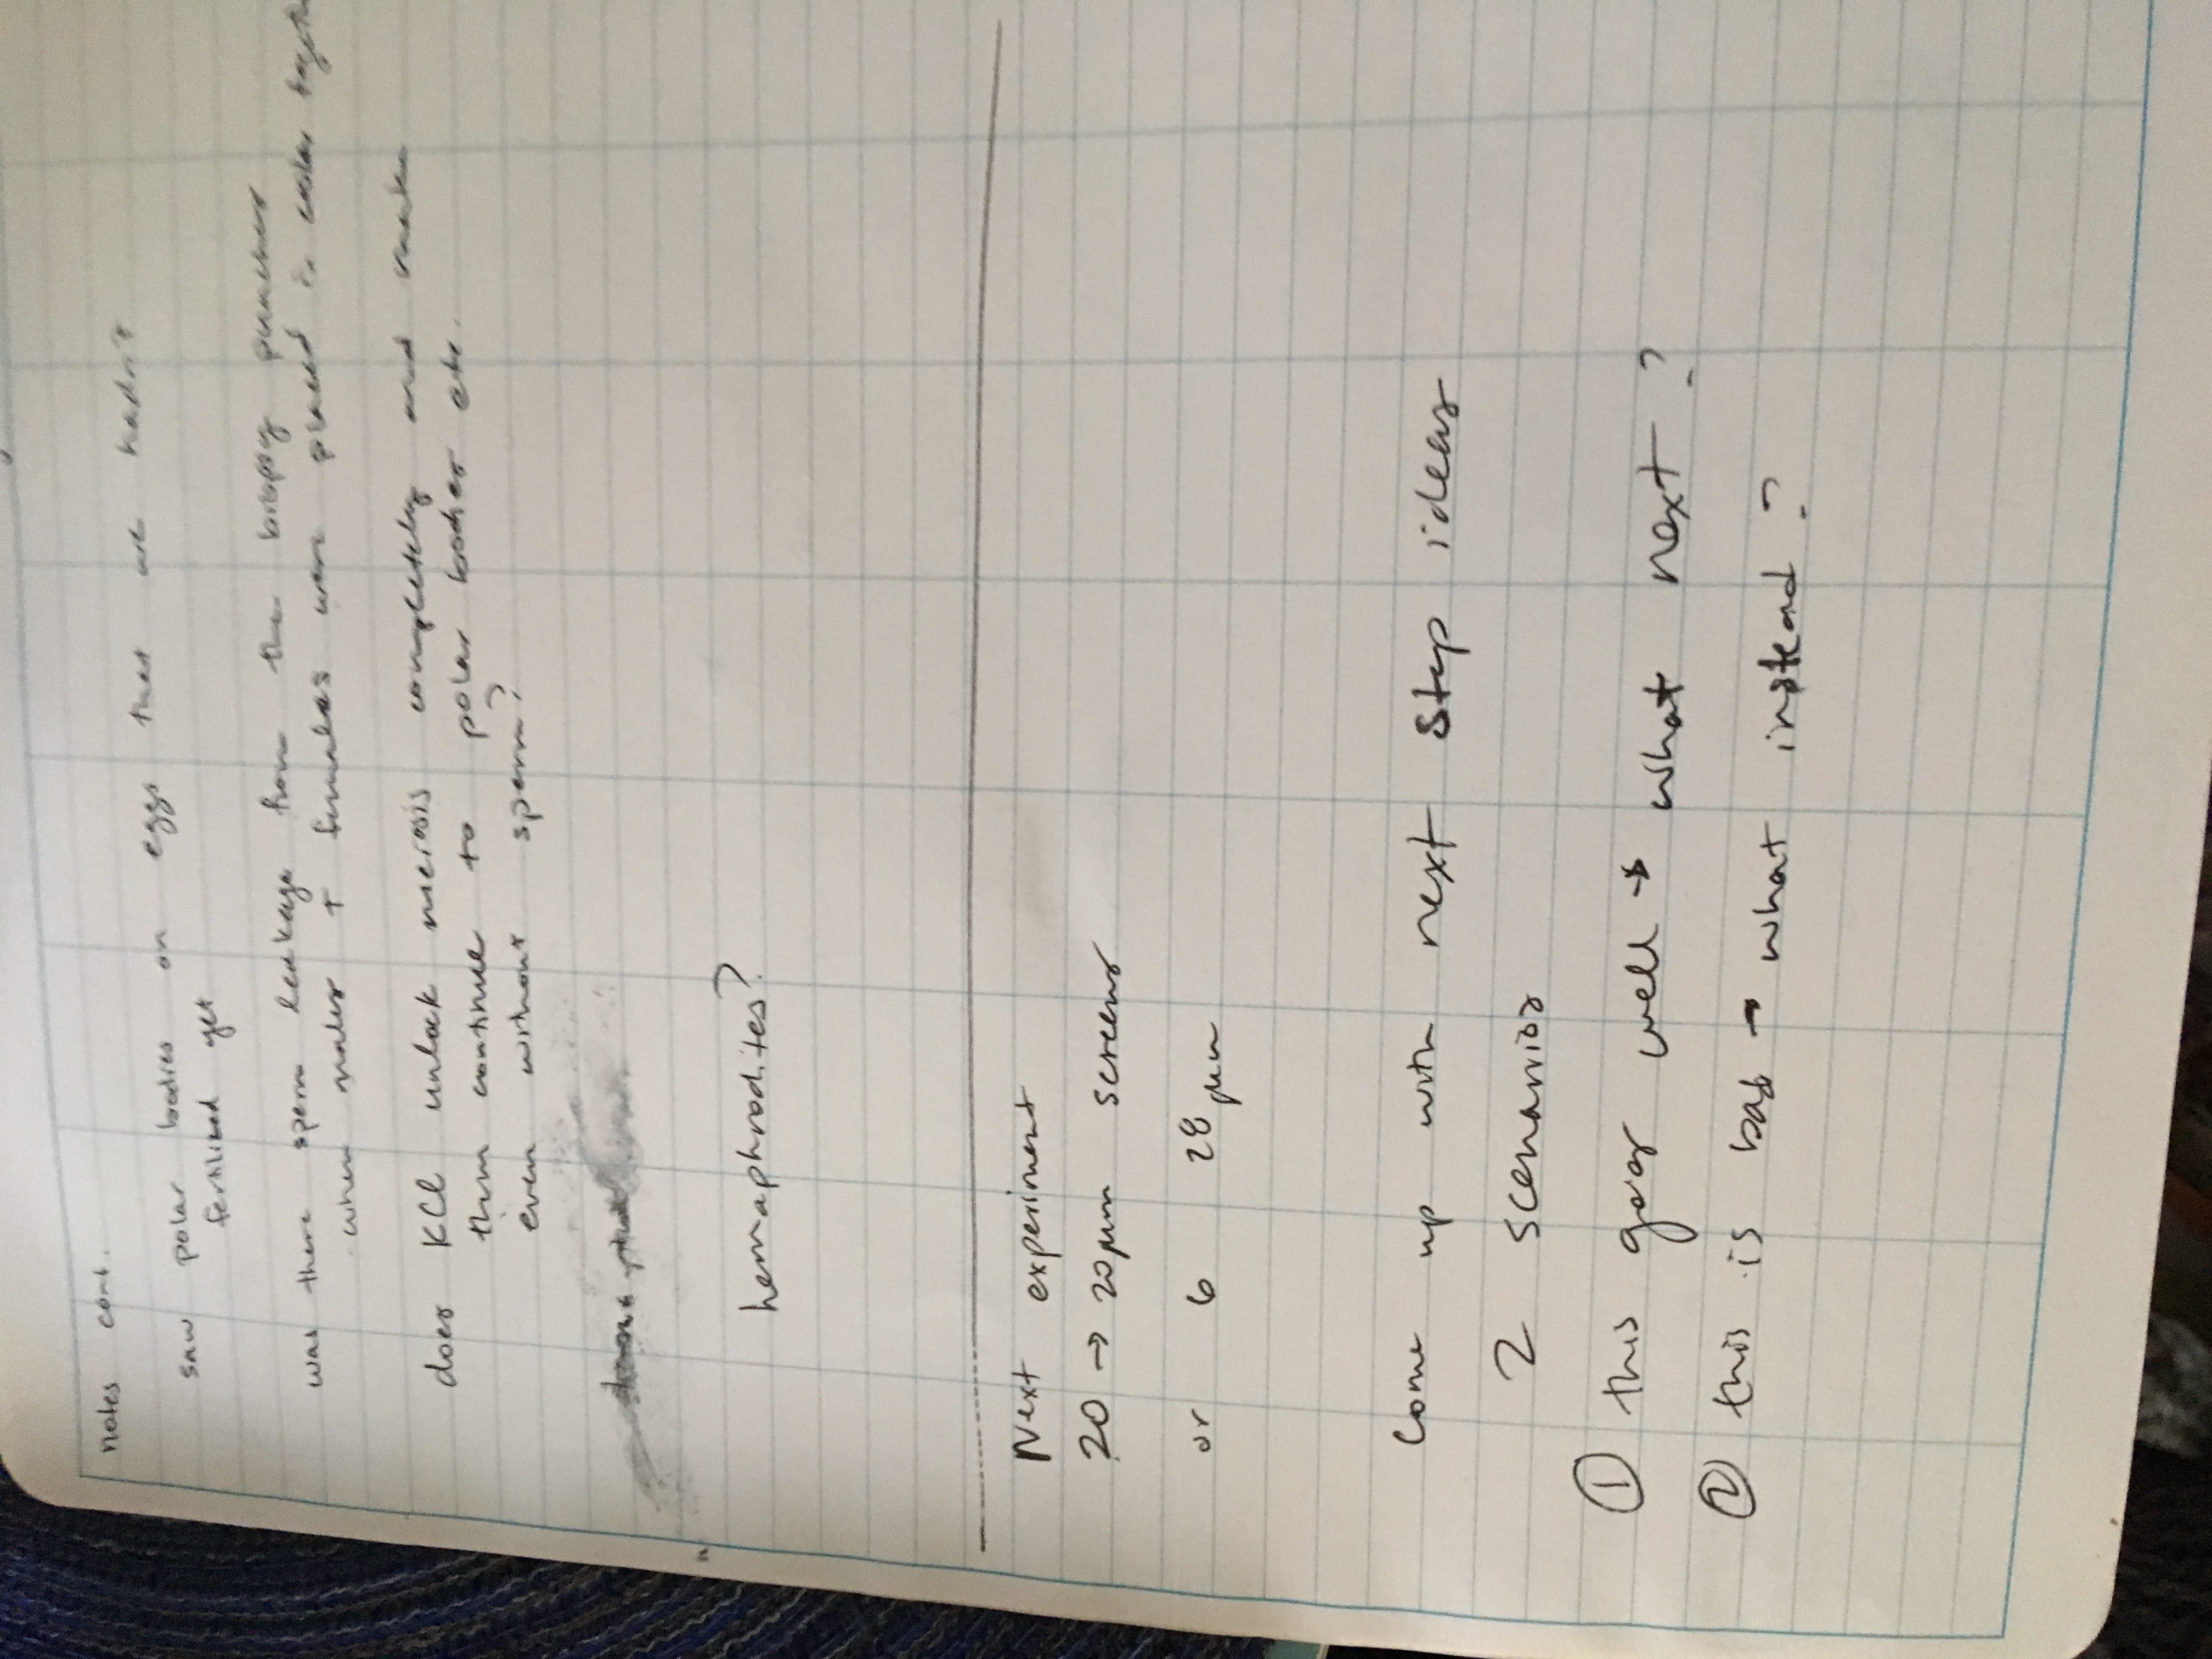 notes cont.
saw polar bodies on eggs that we hadn't
fertilized yet
was there sperm leakage from the biopsy punches
- when males + females were placed in water
does KCl unlock meiosis completely and make
them continue to polar bodies etc.
even without sperm?
hermaphrodites?
Next experiment
20 → 20 µm screens
or 6 28 µm
Come up with next step ideas
2 scenarios
① this goes well → what next?
② this is bad → what instead?